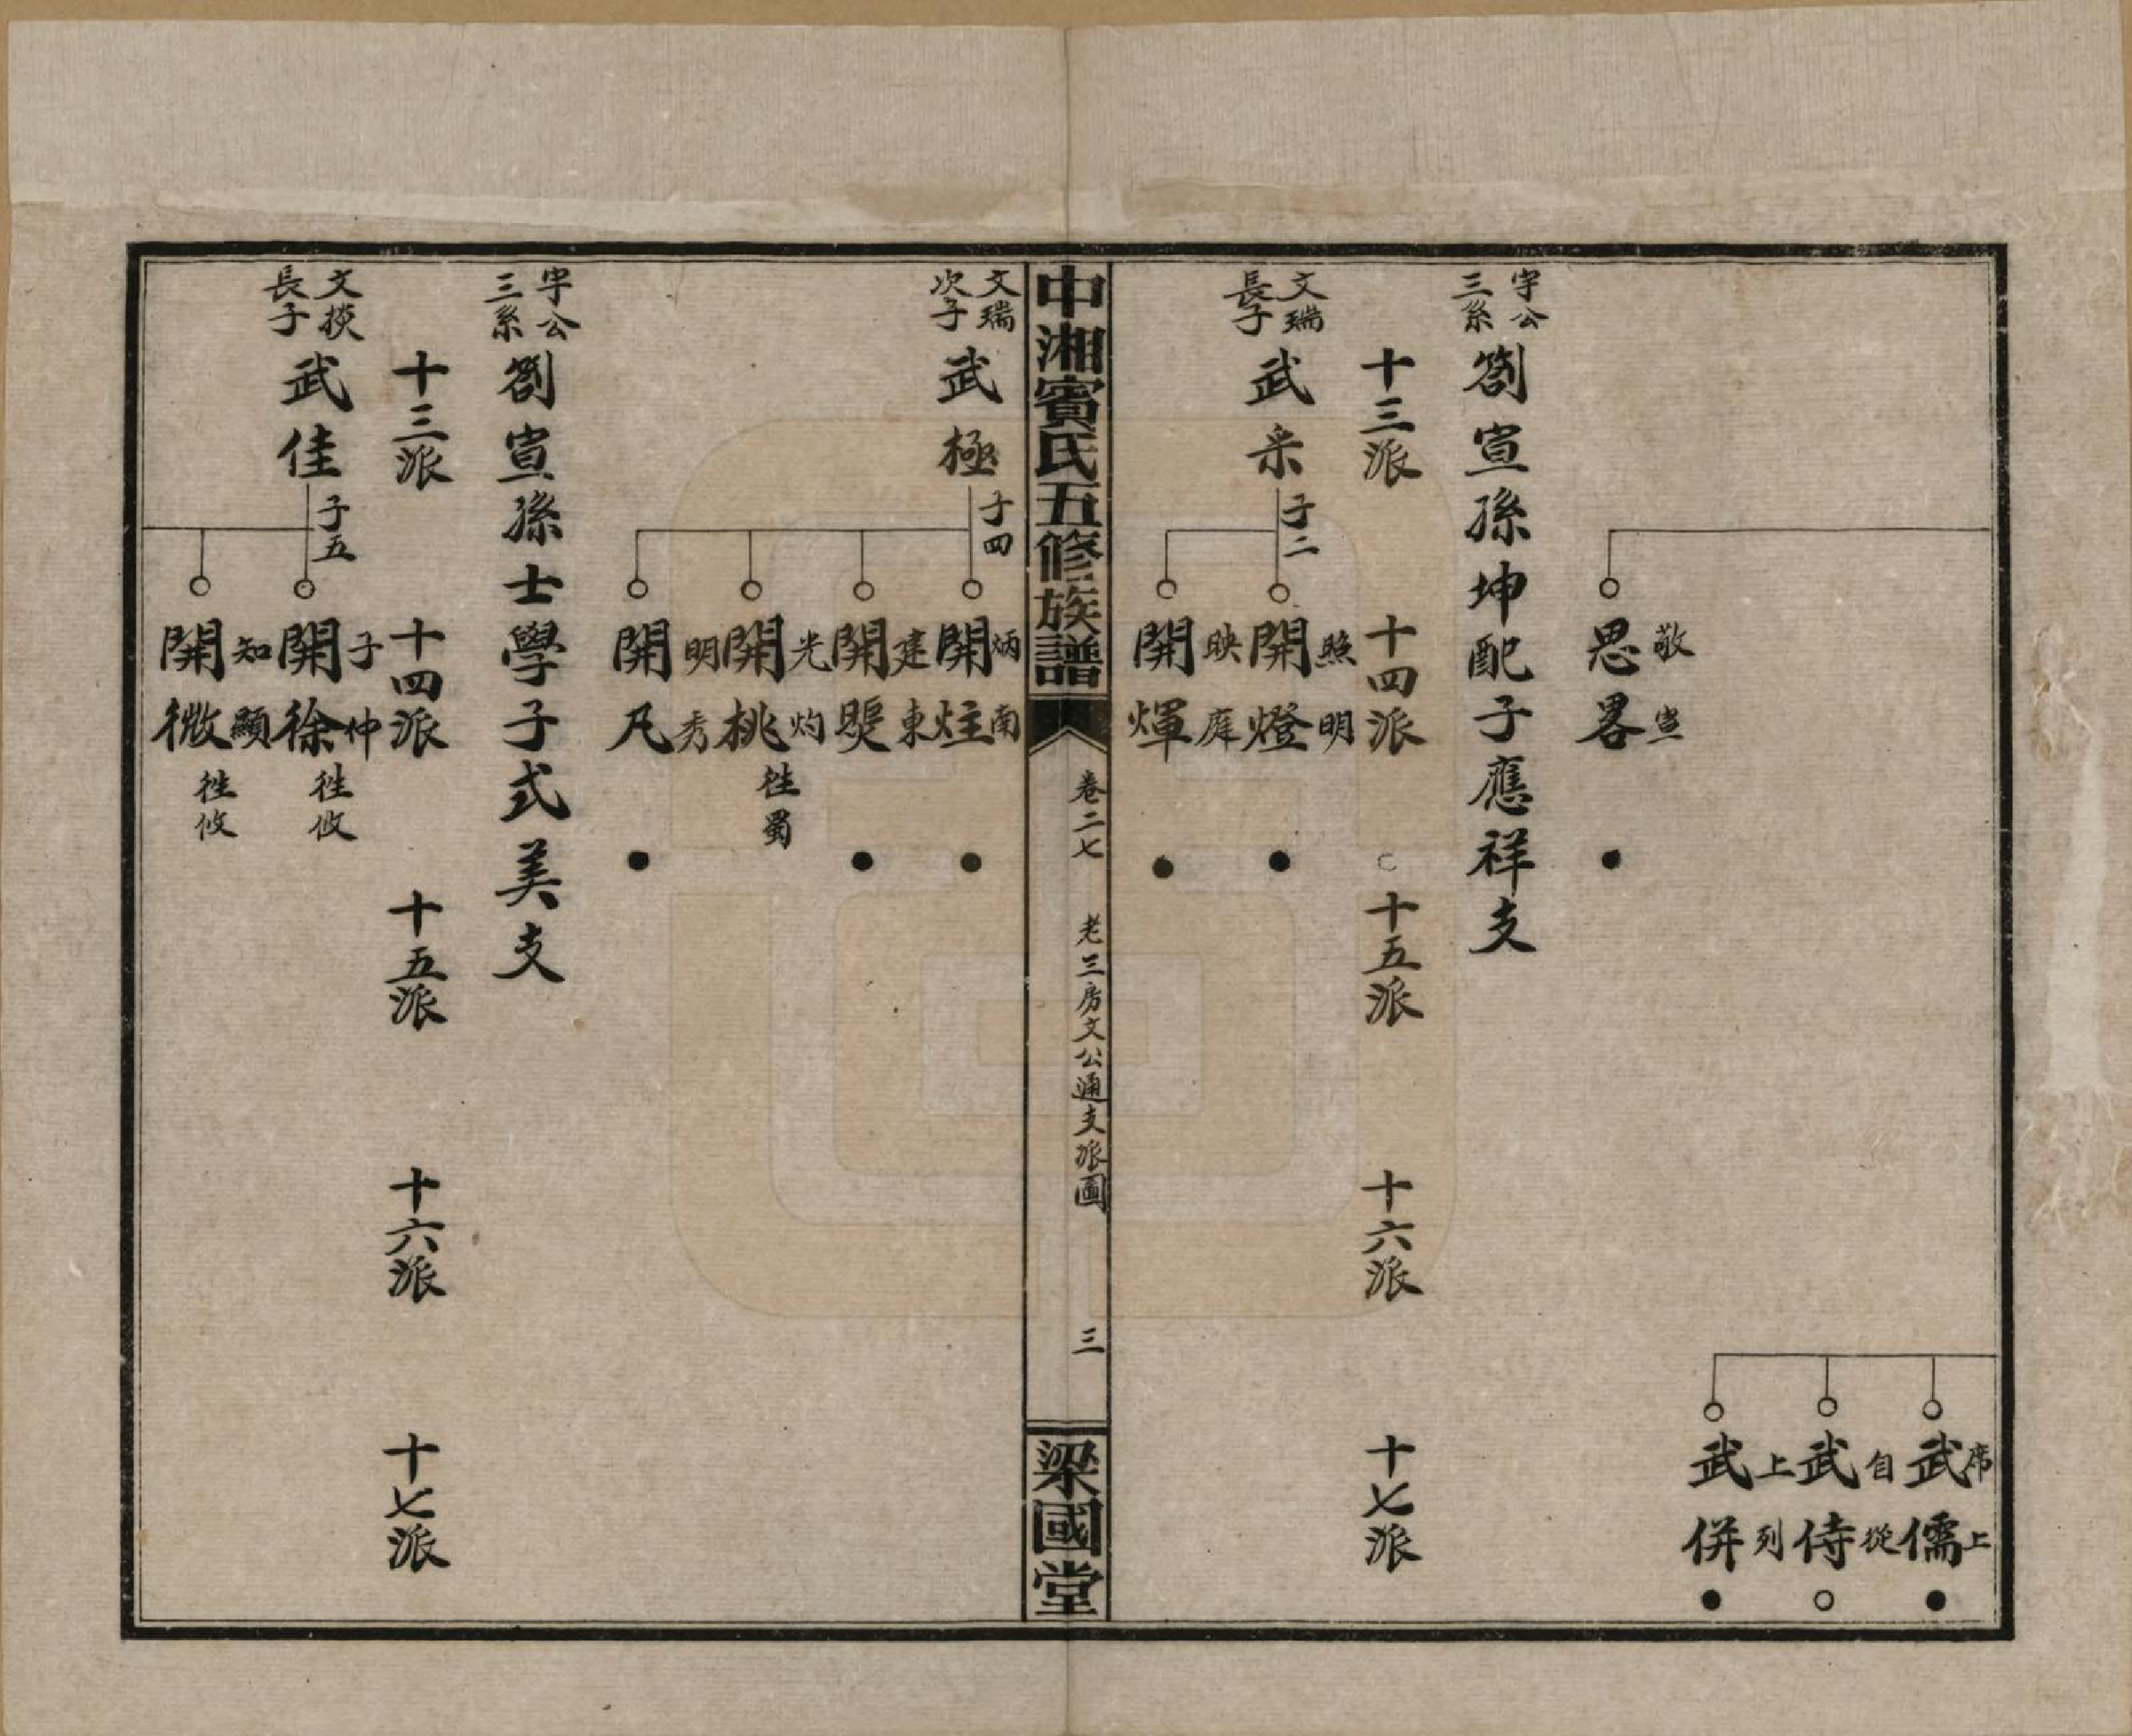 席上
武儒
自從
武侍
上列
武併
敬宣
思畧
宇公三系
劄宣孫坤配子應祥支
十三派 十四派 十五派 十六派 十七派
文瑞長子
武采 子二
照明
開燈
映庭
開煇
中湘賓氏五修族譜 卷二七 老三房文公通支派圖 三 梁國堂
文瑞次子
武極 子四
炳南
開炷
建東
開煚
光灼
開桃 徃蜀
明秀
開凡
宇公三系
劄宣孫士學子式美支
十三派 十四派 十五派 十六派 十七派
文掞長子
武佳 子五
子仲
開徐 徃攸
知顯
開微 徃攸